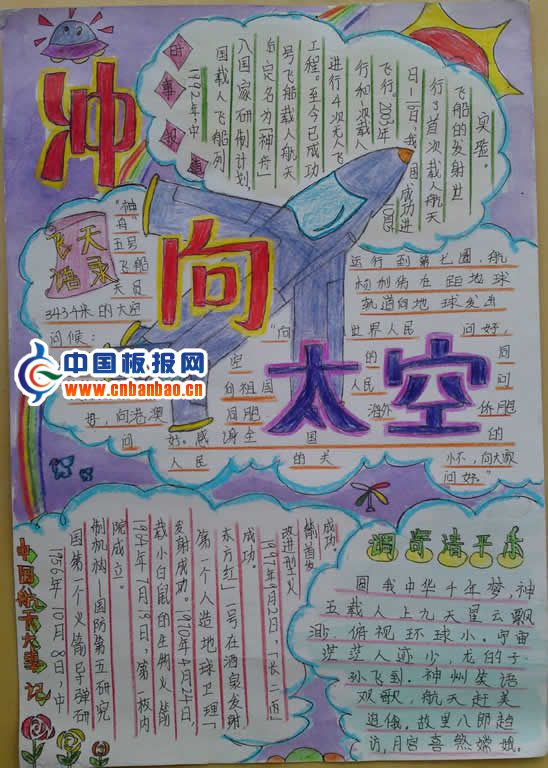 冲向太空
时事报道
1992年中
国载人飞船列
入国家研制计划,
后定名为「神舟」
号飞船载人航天
工程。至今已成功
进行4次无人飞
行和一次载人
飞行。2003年10月15
日—16日,我国成功进
行了首次载人航天
飞船的发射世
实验。
飞天语录
“神
舟”
五号 运行到第七圈,航
飞船
天员 杨利伟在距地球
3434米的太空 轨道向地球发出
问候: “向 世界人民 问好,
空 的 同
向祖国 人民 问
同胞 海外 侨胞
好,向港澳
问 好。感谢全 国 的
人民 的关 怀,向大家
问好。”
中国板报网
www.cnbanbao.cn
中国航天大事记
1956年10月8日,中
国第一个火箭导弹研
制机构—国防第五研究
院成立。
1964年7月19日,第一枚内
载小白鼠的生物火箭
发射成功。1970年4月24日,
第一个人造地球卫理「
东方红」一号在酒泉发射
成功。
1997年9月2日,「长二丙」
改进型火
箭首发
成功。
调寄清平乐
圆我中华千年梦,神
五载人上九天星云飘
渺,俯视环球小。宇宙
茫茫人迹少,龙的子
孙飞到。神州笑语
欢歌,航天赶美
追俄,故里八郎趋
访,月宫喜煞嫦娥。